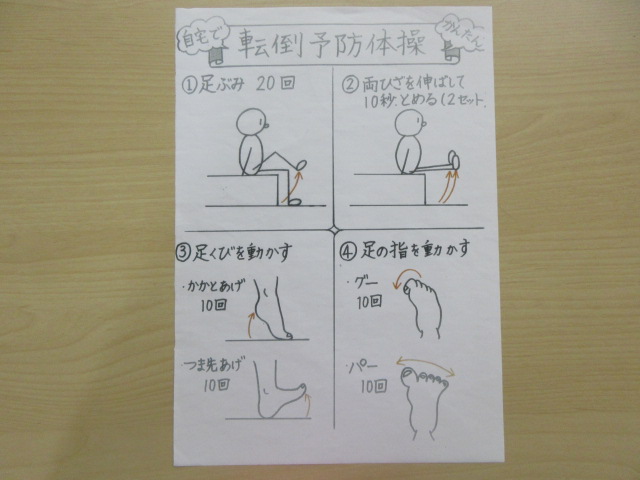 自宅で
転倒予防体操
かんたん
①足ぶみ 20回
②両ひざを伸ばして
10秒とめる(2セット
③足くびを動かす
・かかとあげ
10回
・つま先あげ
10回
④足の指を動かす
・グー
10回
・パー
10回